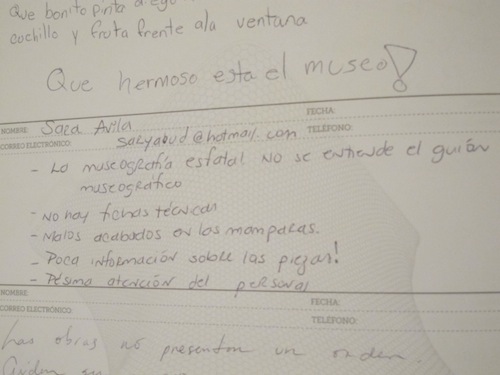 Que bonito pinta diego
cochillo y fruta frente ala ventana
Que hermoso esta el museo!
FECHA:
NOMBRE: Sara Avila
CORREO ELECTRÓNICO: saryabud@hotmail.com TELÉFONO:
- La museografía esfatal no se entiende el guión
museográfico
- No hay fichas técnicas
- Malos acabados en las mamparas.
- Poca información sobre las piezas!
- Pésima atención del personal
NOMBRE: FECHA:
CORREO ELECTRÓNICO: TELÉFONO:
Las obras no presentan un orden.